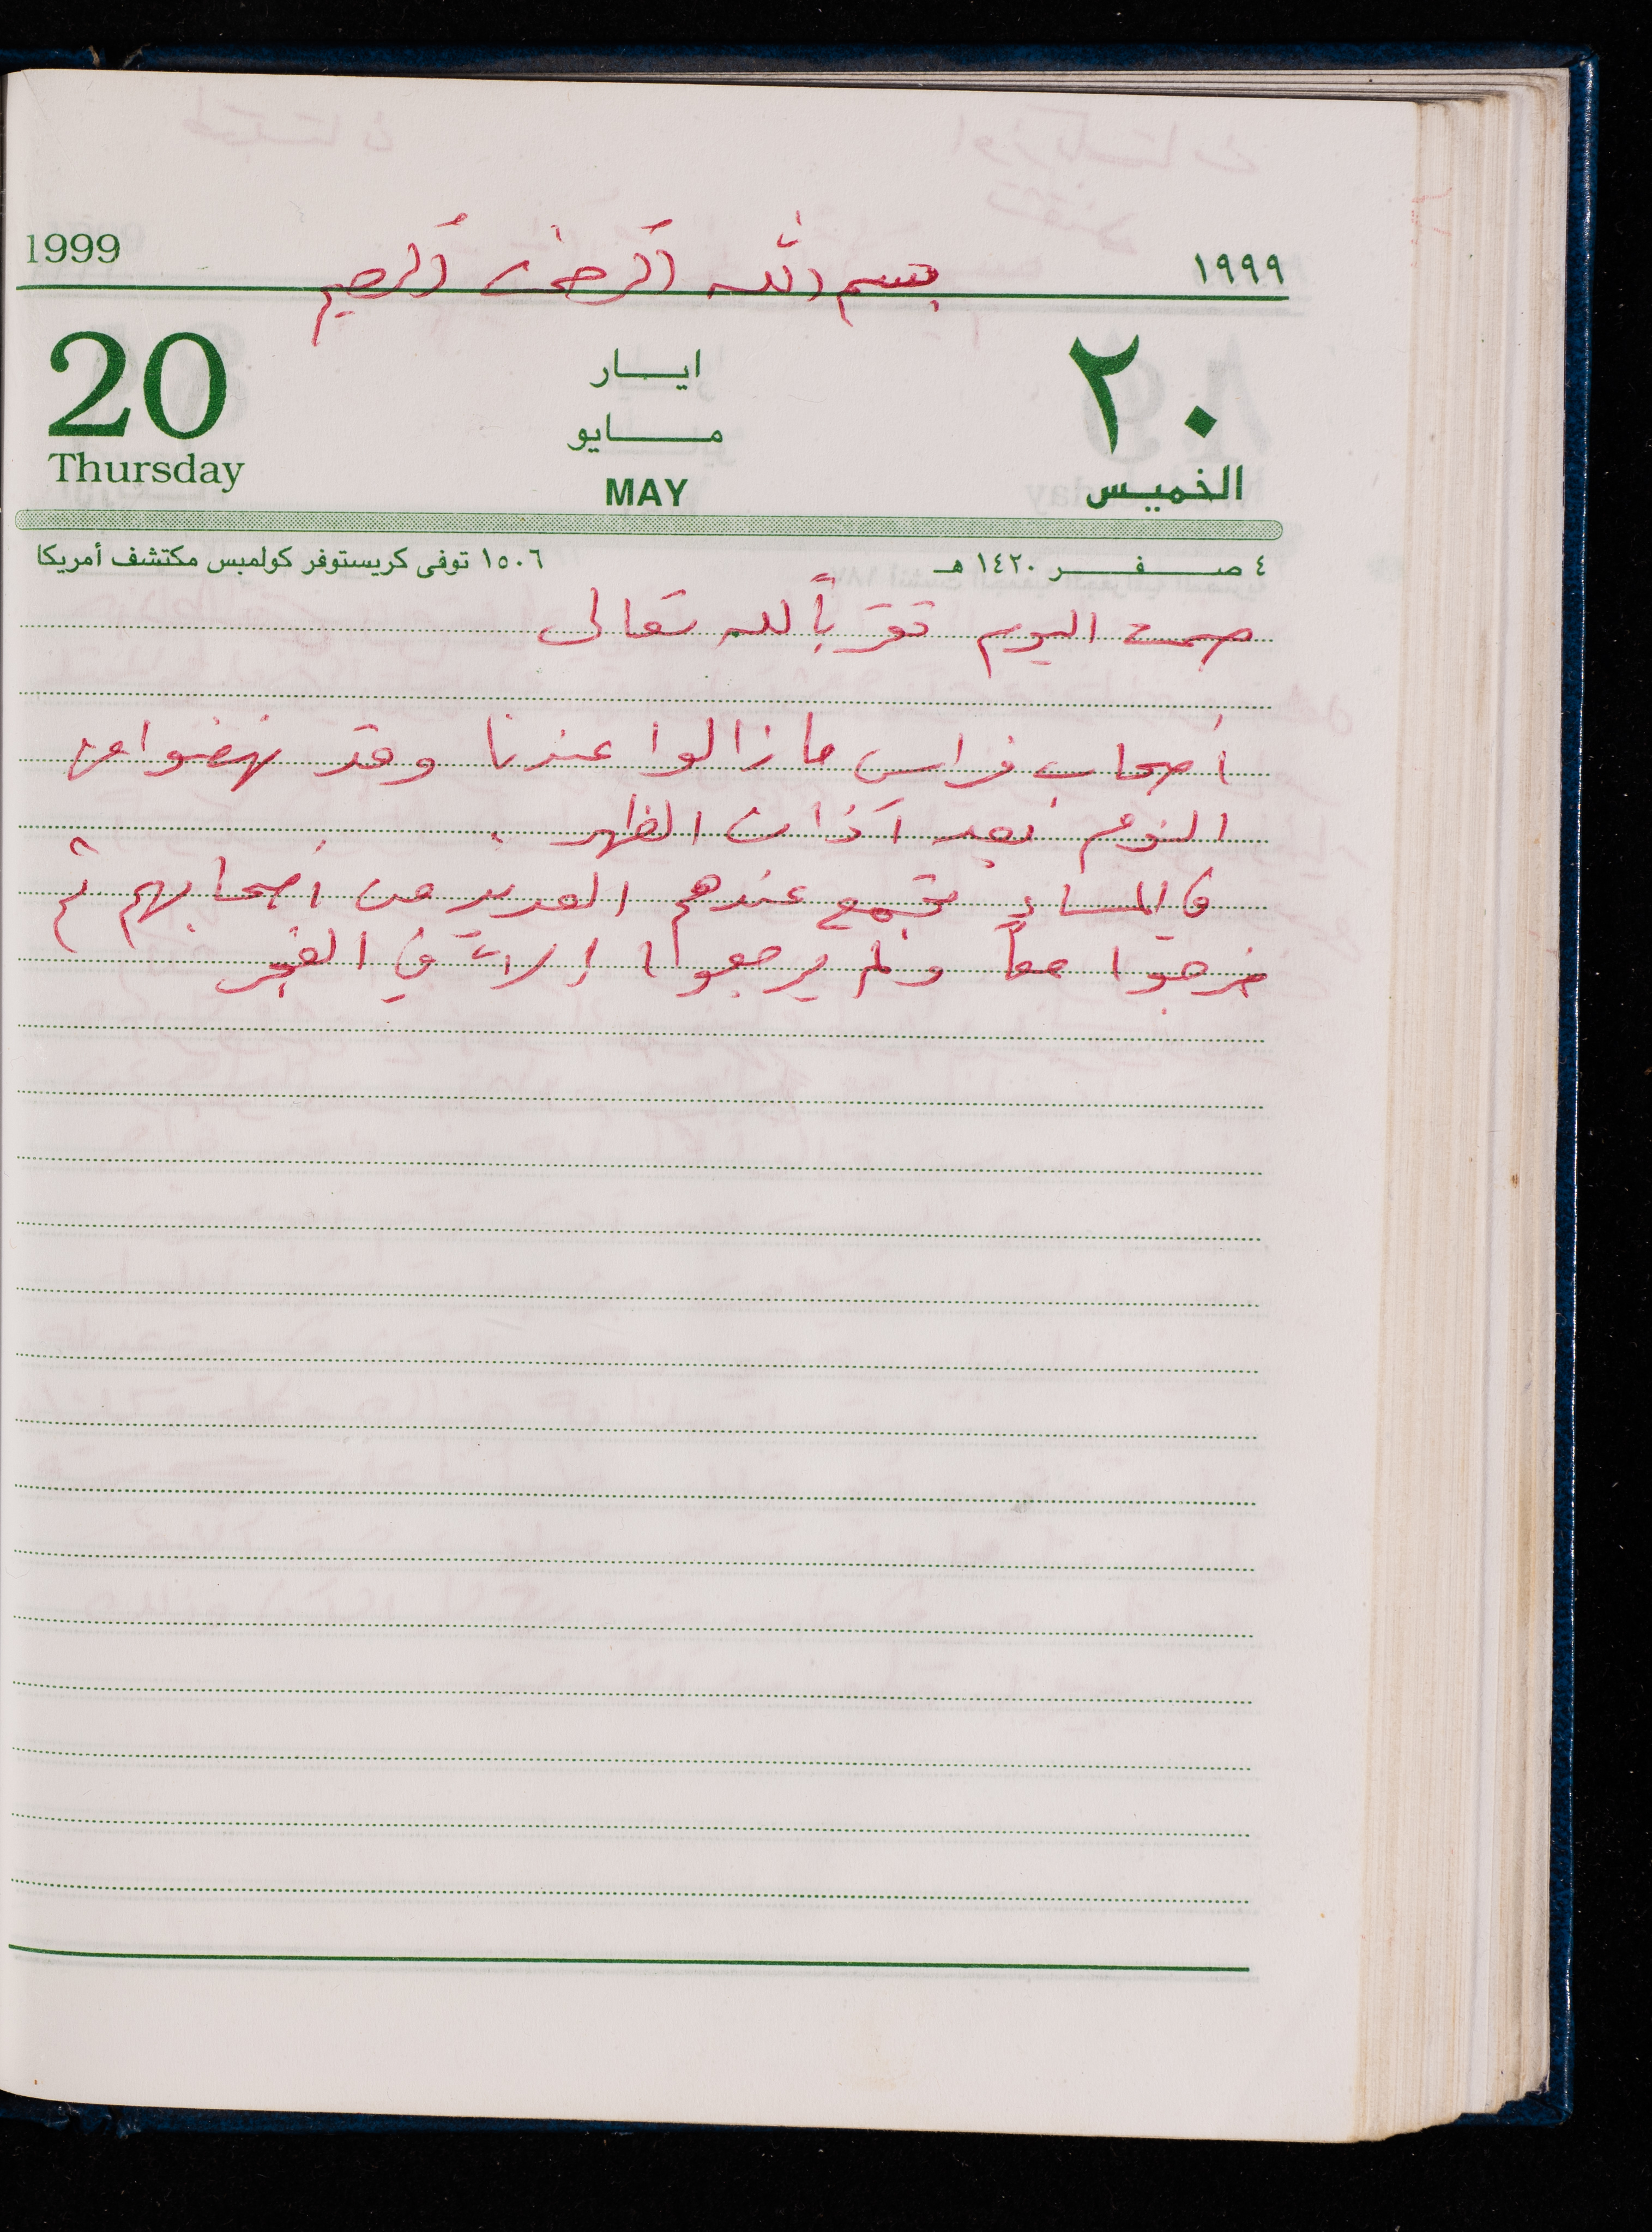 1999 بسم الله الرحمن الرحيم ١٩٩٩
20 ايــار ٢٠
مــايو
Thursday MAY الخميس
٤ صفر ١٤٢٠ هـ ١٥٠٦ توفى كريستوفر كولمبس مكتشف أمريكا
صمت اليوم تقرّباً لله تعالى
أصحاب فراس ما زالوا عندنا وقد نهضوا من
النوم بعد آذان الظهر .
في المساء تجمع عندهم العديد من أصحابهم ثم
خرجوا معاً ولم يرجعوا إلا في الفجر